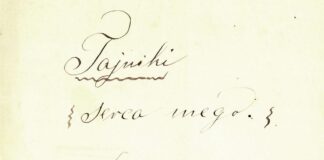 Tajniki
{ serca mego. }